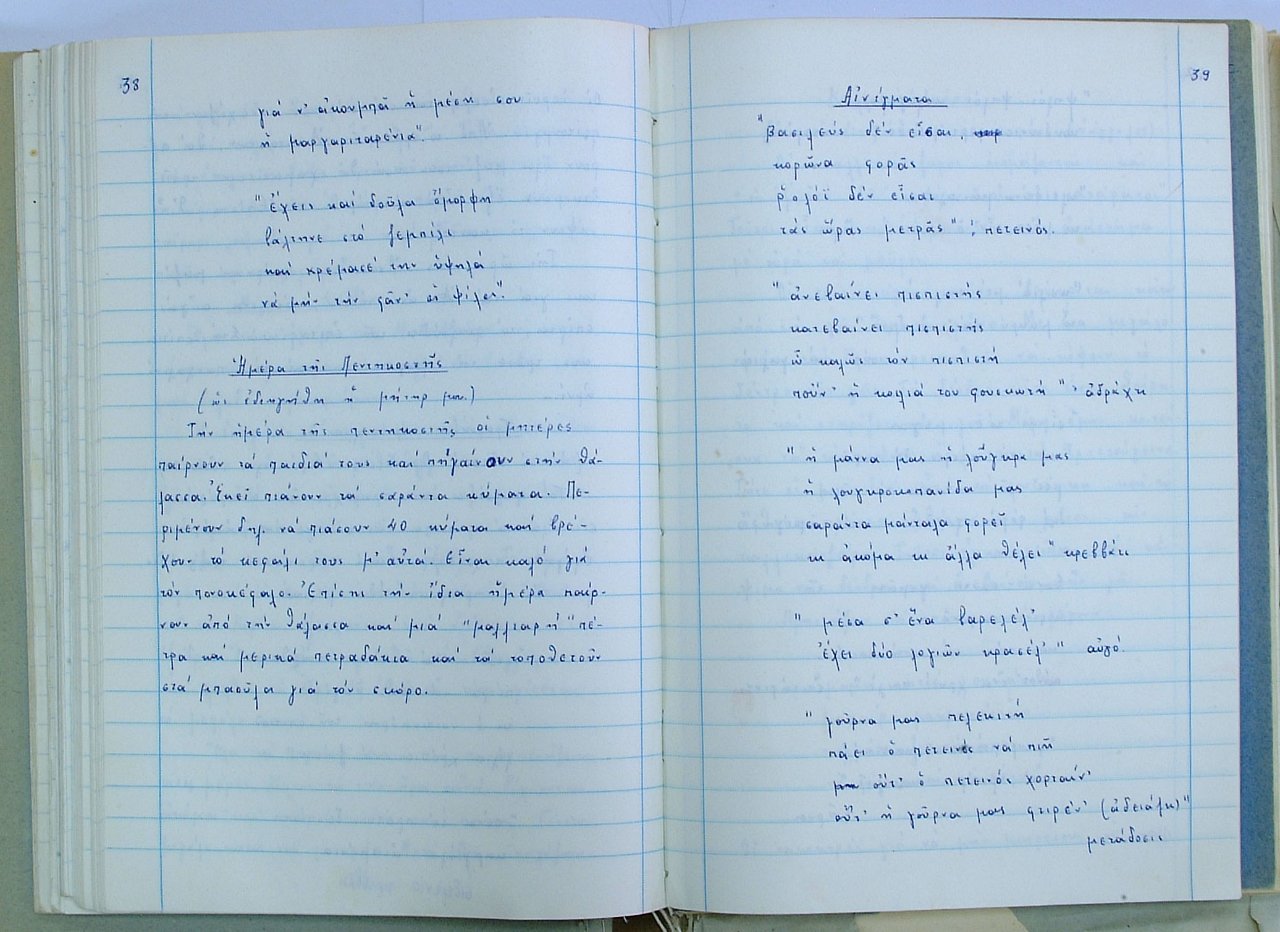 38
γιά ν' ἀκουμπᾶ ἡ μέση σου
ἡ μαργαριταρένια".
"ἔχεις καί δοῦλα ὄμορφη
βάλτηνε στό ζεμπίλι
καί κρέμασέ την ὑψηλά
νά μήν τήν φᾶν' οἱ ψύλοι".
Ἡμέρα τῆς Πεντηκοστῆς
(ὡς ἐδιηγήθη ἡ μήτηρ μου.)
Τήν ἡμέρα τῆς πεντηκοστῆς οἱ μητέρες
παίρνουν τά παιδιά τους καί πηγαίνουν στήν θά-
λασσα. Ἐκεῖ πιάνουν τά σαράντα κύματα. Πε-
ριμένουν δηλ. νά πιάσουν 40 κύματα καί βρέ-
χουν τό κεφάλι τους μ' αὐτά. Εἶναι καλό γιά
τόν πονοκέφαλο. Ἐπίσης τήν ἴδια ἡμέρα παίρ-
νουν ἀπό τήν θάλασσα καί μιά "μαλλιαρή" πέ-
τρα καί μερικά πετραδάκια καί τά τοποθετοῦν
στά μπαοῦλα γιά τόν σκόρο.
39
Αἰνίγματα
"βασιλεύς δέν εἶσαι.
κορῶνα φορᾶς
ρολόϊ δέν εἶσαι
τάς ὥρας μετρᾶς"; πετεινός.
"ἀνεβαίνει πισπιστής
κατεβαίνει πισπιστής
ὦ καλῶς τόν πισπιστή
ποὔν' ἡ κοιλιά του φουσκωτή". ἀδράχτι
"ἡ μάννα μας ἡ λούγκρα μας
ἡ λουγκροκοπανίδα μας
σαράντα μάνταλα φορεῖ
κι ἀκόμα κι ἄλλα θέλει" κρεββάτι
"μέσα σ' ἕνα βαρελέλ'
ἔχει δύο λογιῶν κρασέλ'" αὐγό.
"γοῦρνα μας πελεκιτή
πάει ὁ πετεινός νά πιῆ
οὔτ' ὁ πετεινός χορταίν'
οὔτ' ἡ γοῦρνα μας φτιρέν' (ἀδειάζει)"
μετάδοσις